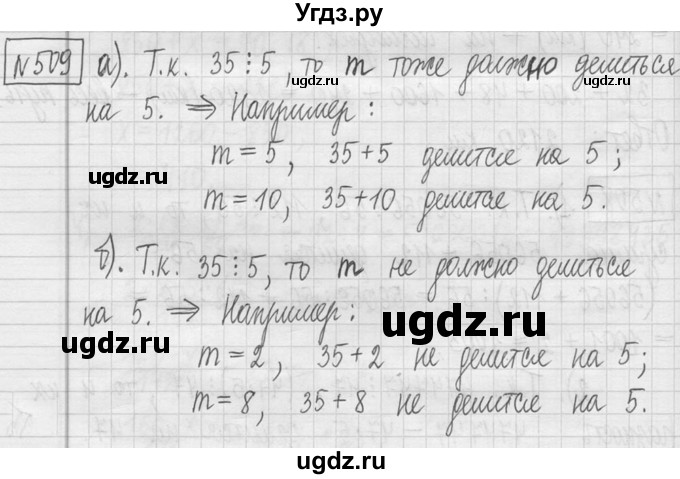 Угдз.ру
№509 а). Т.к. 35⋮5, то m тоже должно делиться
на 5. ⇒ Например:
m = 5, 35+5 делится на 5;
m = 10, 35+10 делится на 5.
б). Т.к. 35⋮5, то m не должно делиться
на 5. ⇒ Например:
m = 2, 35+2 не делится на 5;
m = 8, 35+8 не делится на 5.
ugdz.ru
ugdz.ru
ugdz.ru
ugdz.ru
ugdz.ru
ugdz.ru
ugdz.ru
ugdz.ru